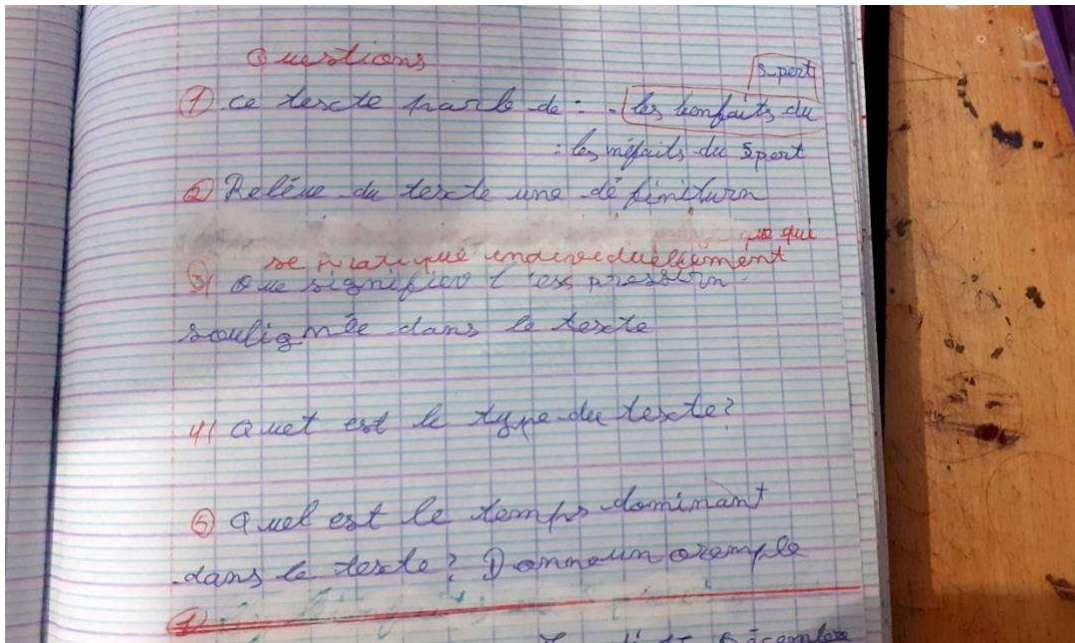 Questions
① ce texte parle de : - les bonfaits du sport
: les méfaits du sport
② Relève du texte une définiturn
que qui
se pratique individuellement
3) Que signifier l'esspression
soulignée dans le texte
4) Quel est le type du texte?
⑤ Quel est le temps dominant
dans le texte? Donne un exemple
Décembre